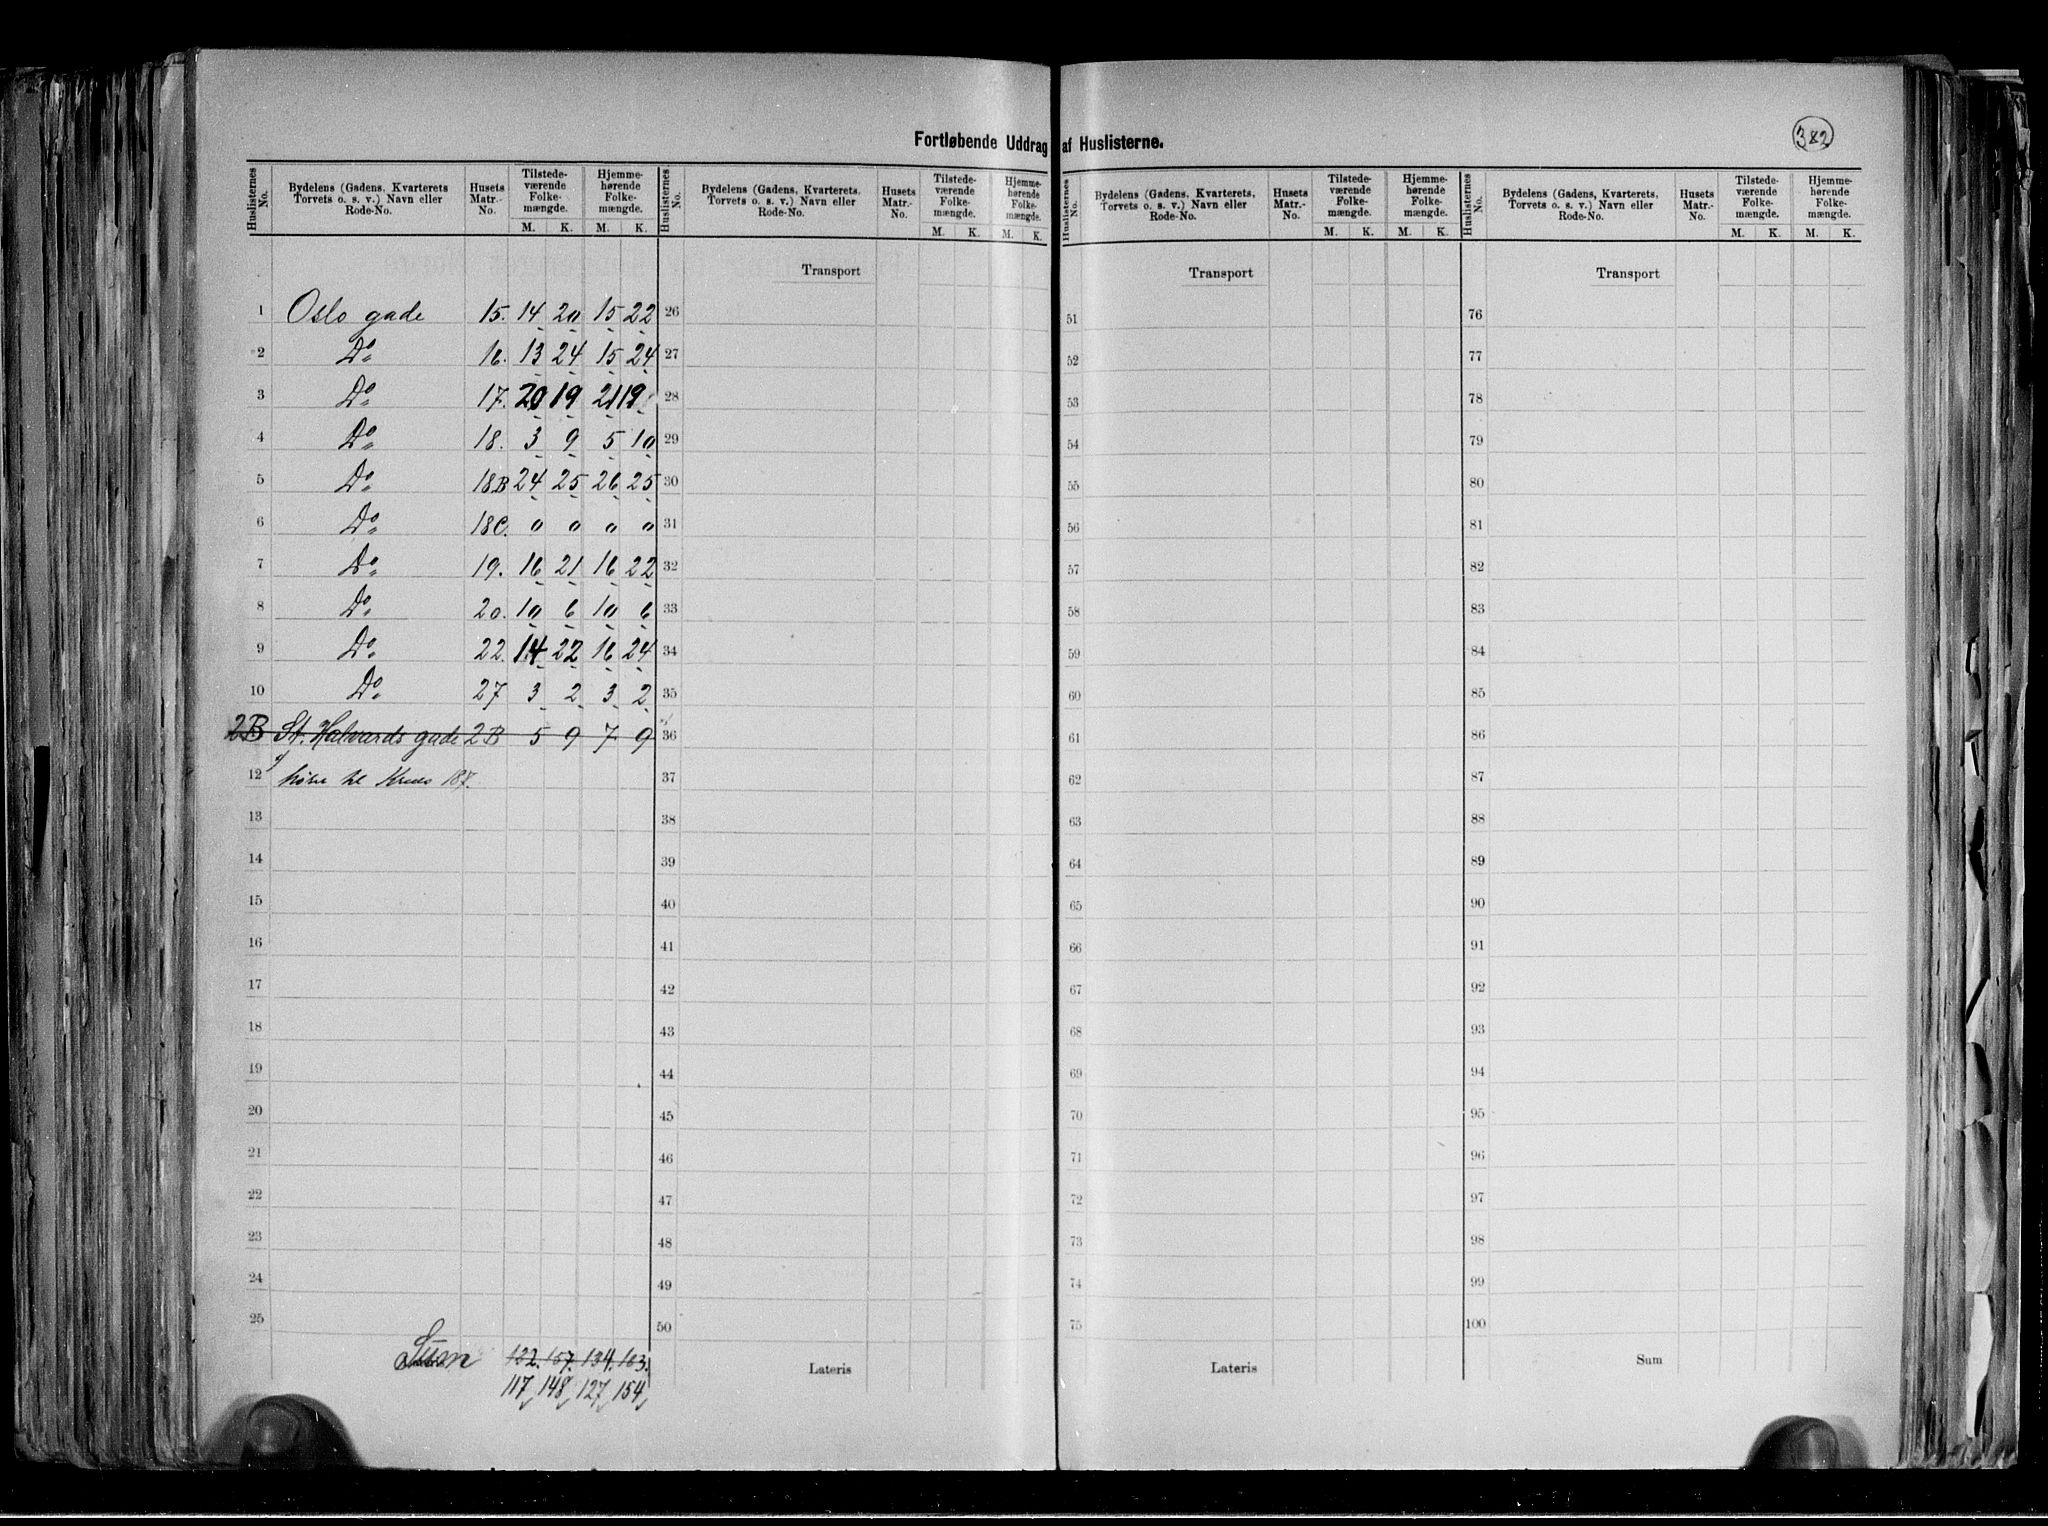 382
Fortløbende Uddrag af Huslisterne.
Huslisternes No. | Bydelens (Gadens, Kvarterets Torvets o. s. v.) Navn eller Rode-No. | Husets Matr.-No. | Tilstedeværende Folkemængde. M. K. | Hjemmehørende Folkemængde. M. K.
Huslisternes No. | Bydelens (Gadens, Kvarterets, Torvets o. s. v.) Navn eller Rode-No. | Husets Matr.-No. | Tilstedeværende Folkemængde. M. K. | Hjemmehørende Folkemængde. M. K.
Huslisternes No. | Bydelens (Gadens, Kvarterets, Torvets o. s. v.) Navn eller Rode-No. | Husets Matr.-No. | Tilstedeværende Folkemængde. M. K. | Hjemmehørende Folkemængde. M. K.
Huslisternes No. | Bydelens (Gadens, Kvarterets, Torvets o. s. v.) Navn eller Rode-No. | Husets Matr.-No. | Tilstedeværende Folkemængde. M. K. | Hjemmehørende Folkemængde. M. K.
Transport Transport Transport
1 Oslo gade 15. 14 20 15 22 26 51 76
2 Do 16. 13 24 15 24 27 52 77
3 Do 17. 20 19 21 19 28 53 78
4 Do 18. 3 9 5 10 29 54 79
5 Do 18B 24 25 26 25 30 55 80
6 Do 18C. 0 0 0 0 31 56 81
7 Do 19. 16 21 16 22 32 57 82
8 Do 20. 10 6 10 6 33 58 83
9 Do 22. 14 22 16 24 34 59 84
10 Do 27 3 2 3 2 35 60 85
2B St. Halvards gade 2B 5 9 7 9 36 61 86
12 hører til Kreds 187. 37 62 87
13 38 63 88
14 39 64 89
15 40 65 90
16 41 66 91
17 42 67 92
18 43 68 93
19 44 69 94
20 45 70 95
21 46 71 96
22 47 72 97
23 48 73 98
24 49 74 99
25 50 75 100
Sum 122. 157. 134. 163. Lateris Lateris Sum
117 148 127 154